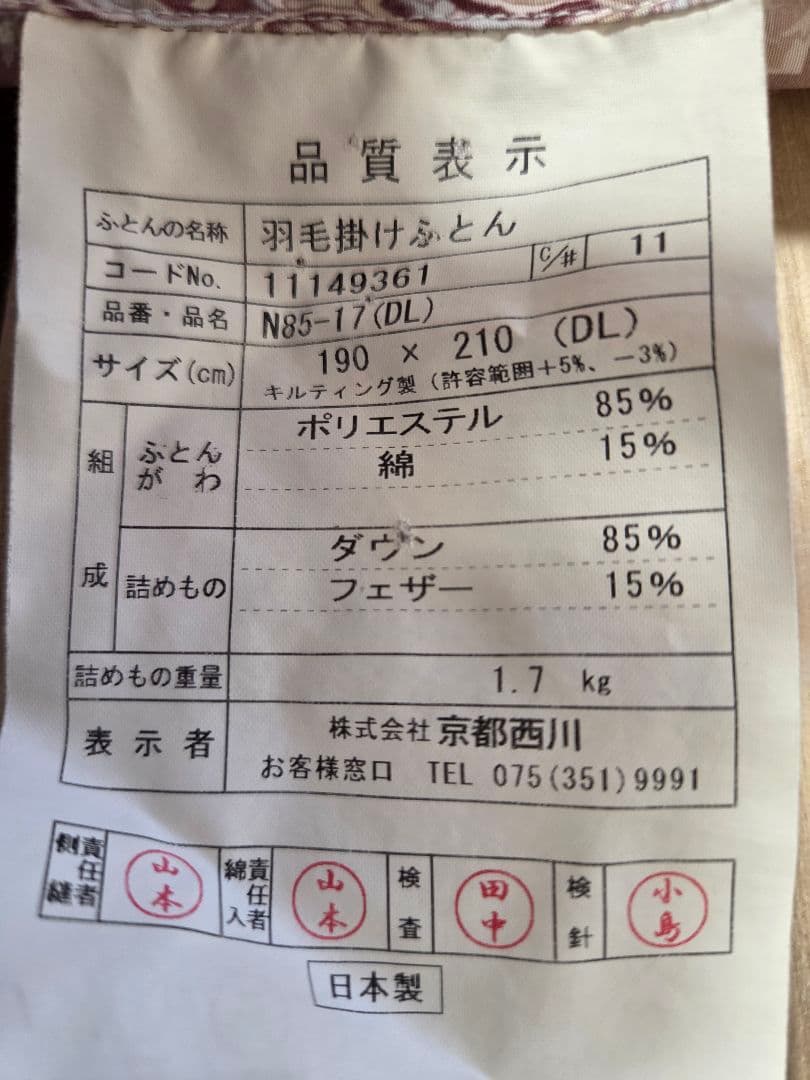 品質表示
ふとんの名称 羽毛掛けふとん
コードNo. 11149361 C/# 11
品番・品名 N85-17(DL)
サイズ(cm) 190 × 210 (DL)
キルティング製(許容範囲+5%、-3%)
組成 ふとんがわ ポリエステル 85%
綿 15%
詰めもの ダウン 85%
フェザー 15%
詰めもの重量 1.7 kg
表示者 株式会社京都西川
お客様窓口 TEL 075(351)9991
側縫責任者 山本 綿入責任者 山本 検査 田中 検針 小島
日本製